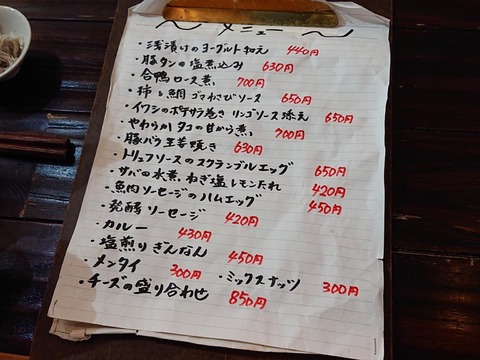 〜メニュー〜
・浅漬けのヨーグルト和え 440円
・豚タンの塩煮込み 630円
・合鴨ロース煮 700円
・柿と鯛ゴマわさびソース 650円
・イワシのポテサラ巻きリンゴソース添え 650円
・やわらかタコの甘から煮 700円
・豚バラ生姜焼き 630円
・トリュフソースのスクランブルエッグ 650円
・サバの水煮ねぎ塩レモンだれ 420円
・魚肉ソーセージのハムエッグ 450円
・発酵ソーセージ 420円
・カルー 430円
・塩煎りぎんなん 450円
・メンタイ 300円 ・ミックスナッツ 300円
・チーズの盛り合わせ 850円